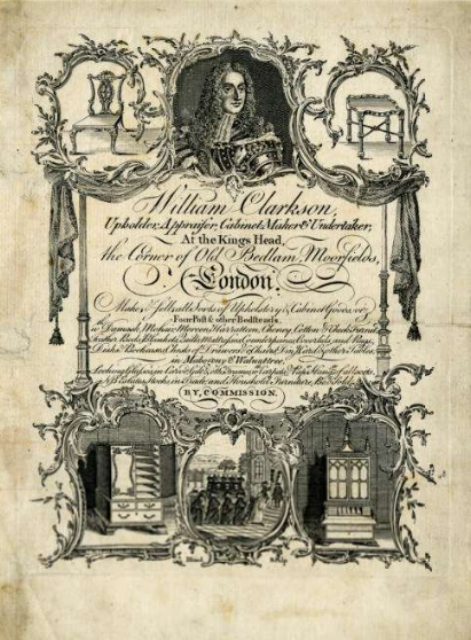 William Clarkson,
Upholder, Appraiser, Cabinet Maker & Undertaker,
At the Kings Head,
the Corner of Old Bedlam, Moorfields,
London.
Makes & sells all Sorts of Upholstery & Cabinet Goods, viz.
Four Post & other Bedsteads
in Damask, Mohair, Morreen, Harrateen, Cheney, Cotton & Check Furniture
Feather Beds, Blankets, Quilts, Mattresses, Counterpanes, Coverlids, and Rugs,
Desks & Bookcases, Chests of Drawers, Chairs, Card & other Tables,
in Mahogany & Walnuttree,
Looking Glasses in Carv'd Gilt & other Frames, Carpets & Paper Hangings of all sorts,
Stocks in Trade, and Houshold Furniture, Bo.t & Sold
BY COMMISSION.